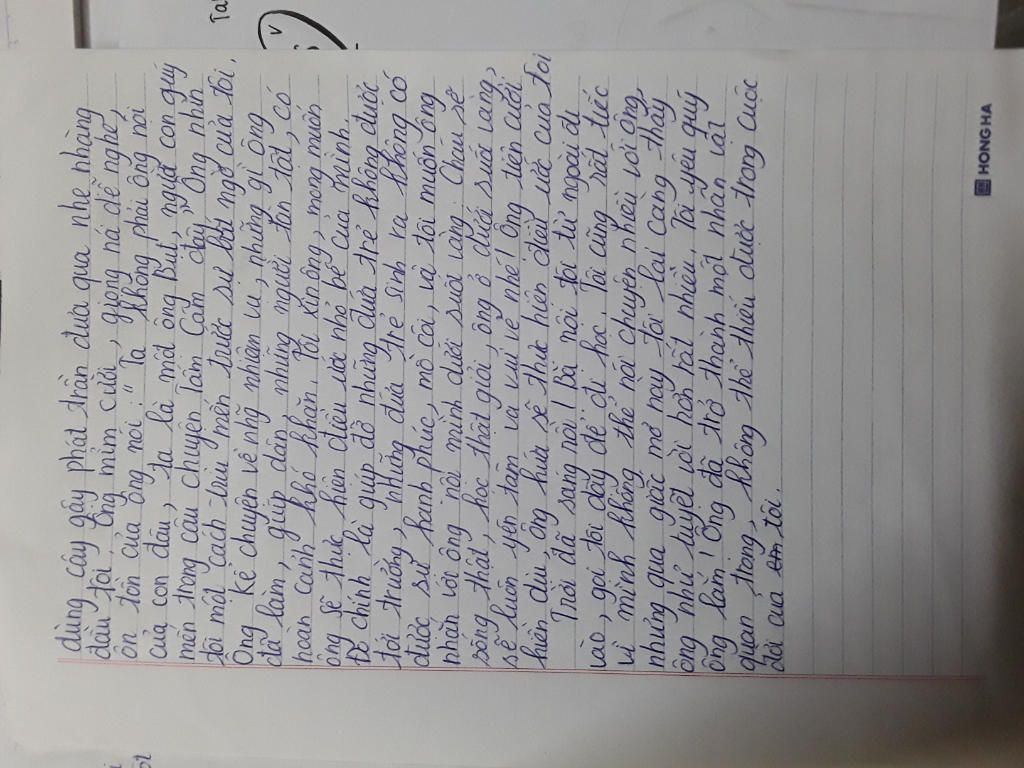 dùng cây gậy phát trần đưa qua nhẹ nhàng
đầu tôi. Ông mỉm cười, giọng nói dễ nghe,
ôn tồn của ông nói: " Ta không phải ông nội
của con đâu, ta là một ông Bụt, người con quý
mến trong câu chuyện Tấm Cám đây". Ông nhìn
tôi một cách trìu mến trước sự bất ngờ của tôi.
Ông kể chuyện về nhữ nhiệm vụ, những gì ông
đã làm, giúp dân những người tàn tật, có
hoàn cảnh khó khăn. Tôi xin ông, mong muốn
ông sẽ thực hiện điều ước nhỏ bé của mình.
Đó chính là giúp đỡ những đứa trẻ không được
tới trường, những đứa trẻ sinh ra không có
được sự hạnh phúc, mồ côi, và tôi muốn ông
nhắn với ông nội mình dưới suối vàng: Cháu sẽ
sống thật, học thật giỏi, ông ở dưới suối vàng,
sẽ luôn yên tâm và vui vẻ nhé! Ông tiên cười
hiền dịu, ông hứa sẽ thực hiện điều ước của tôi
Trời đã sáng rồi! Bà nội tôi từ ngoài đi
vào, gọi tôi dậy để đi học. Tôi cũng rất tiếc
vì mình không thể nói chuyện nhiều với ông,
nhưng qua giấc mơ này tôi lại càng thấy
ông như tuyệt vời hơn rất nhiều. Tôi yêu quý
ông lắm! Ông đã trở thành một nhân vật
quan trọng, không thể thiếu được trong cuộc
đời của tôi.
HONG HA